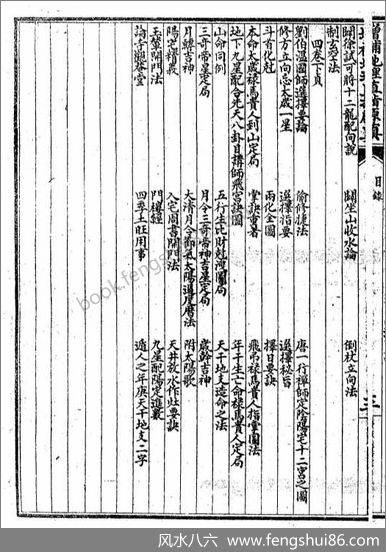 增補地理直指原真
目錄
三
闢徐試可將十二龍配向說
闢坐山收水論
倒杖立向法
制玄空法
四卷下頁
劉伯溫國師選擇要論
偷修捷法
唐一行禪師定陰陽宅十二宮之圖
修方立向忌太歲一星
選擇指要
選擇秘旨
斗首化尅
兩化全圖
擇日要訣
本命太歲祿馬貴人到山定局
掌訣重著
飛弔祿馬貴人指掌圖法
地下九星配合先天八卦目講師飛宮訣圖
年干生亡命祿馬貴人定局
山命同例
五行生比財尅洩圖局
天干地支造命之法
三奇帝星定局
月令三奇帝神吉星定局
歲幹吉神
月轉吉神
大清月令節氣太陽過度曆法
附太陽歌
陽宅精義
入宅周書開門法
天井放水作灶要訣
玉輦開門法
門樓經
九星配陽宅遊數
四季土旺用事
遁人之年庚天干地支二字
book.feng
风水八六
www.fengshui86.com